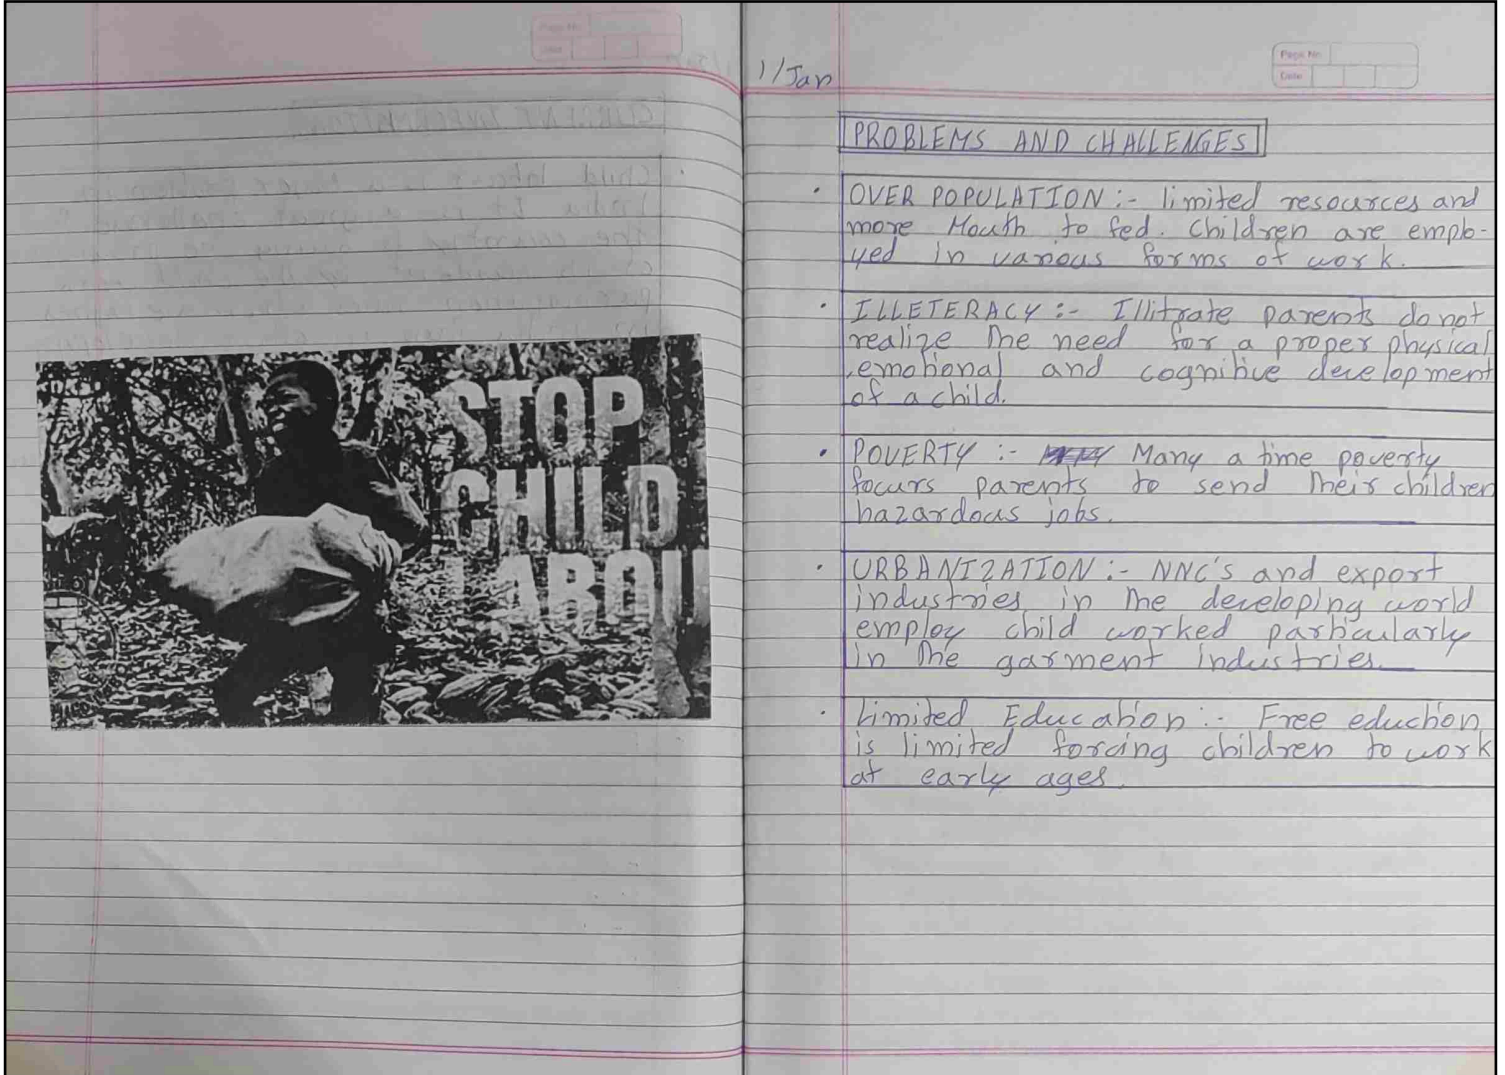 STOP
CHILD
LABOU
Page No.
Date
1/Jan
PROBLEMS AND CHALLENGES
• OVER POPULATION :- limited resources and
more Mouth to fed. Children are emplo-
yed in various forms of work.
• ILLETERACY :- Illitrate parents do not
realize the need for a proper physical
,emotional and cognitive development
of a child.
• POVERTY :- Many a time poverty
focurs parents to send their children
hazardous jobs.
• URBANIZATION :- NNC's and export
industries in the developing world
employ child worked particularly
in the garment industries.
• Limited Education :- Free eduction
is limited forcing children to work
at early ages.